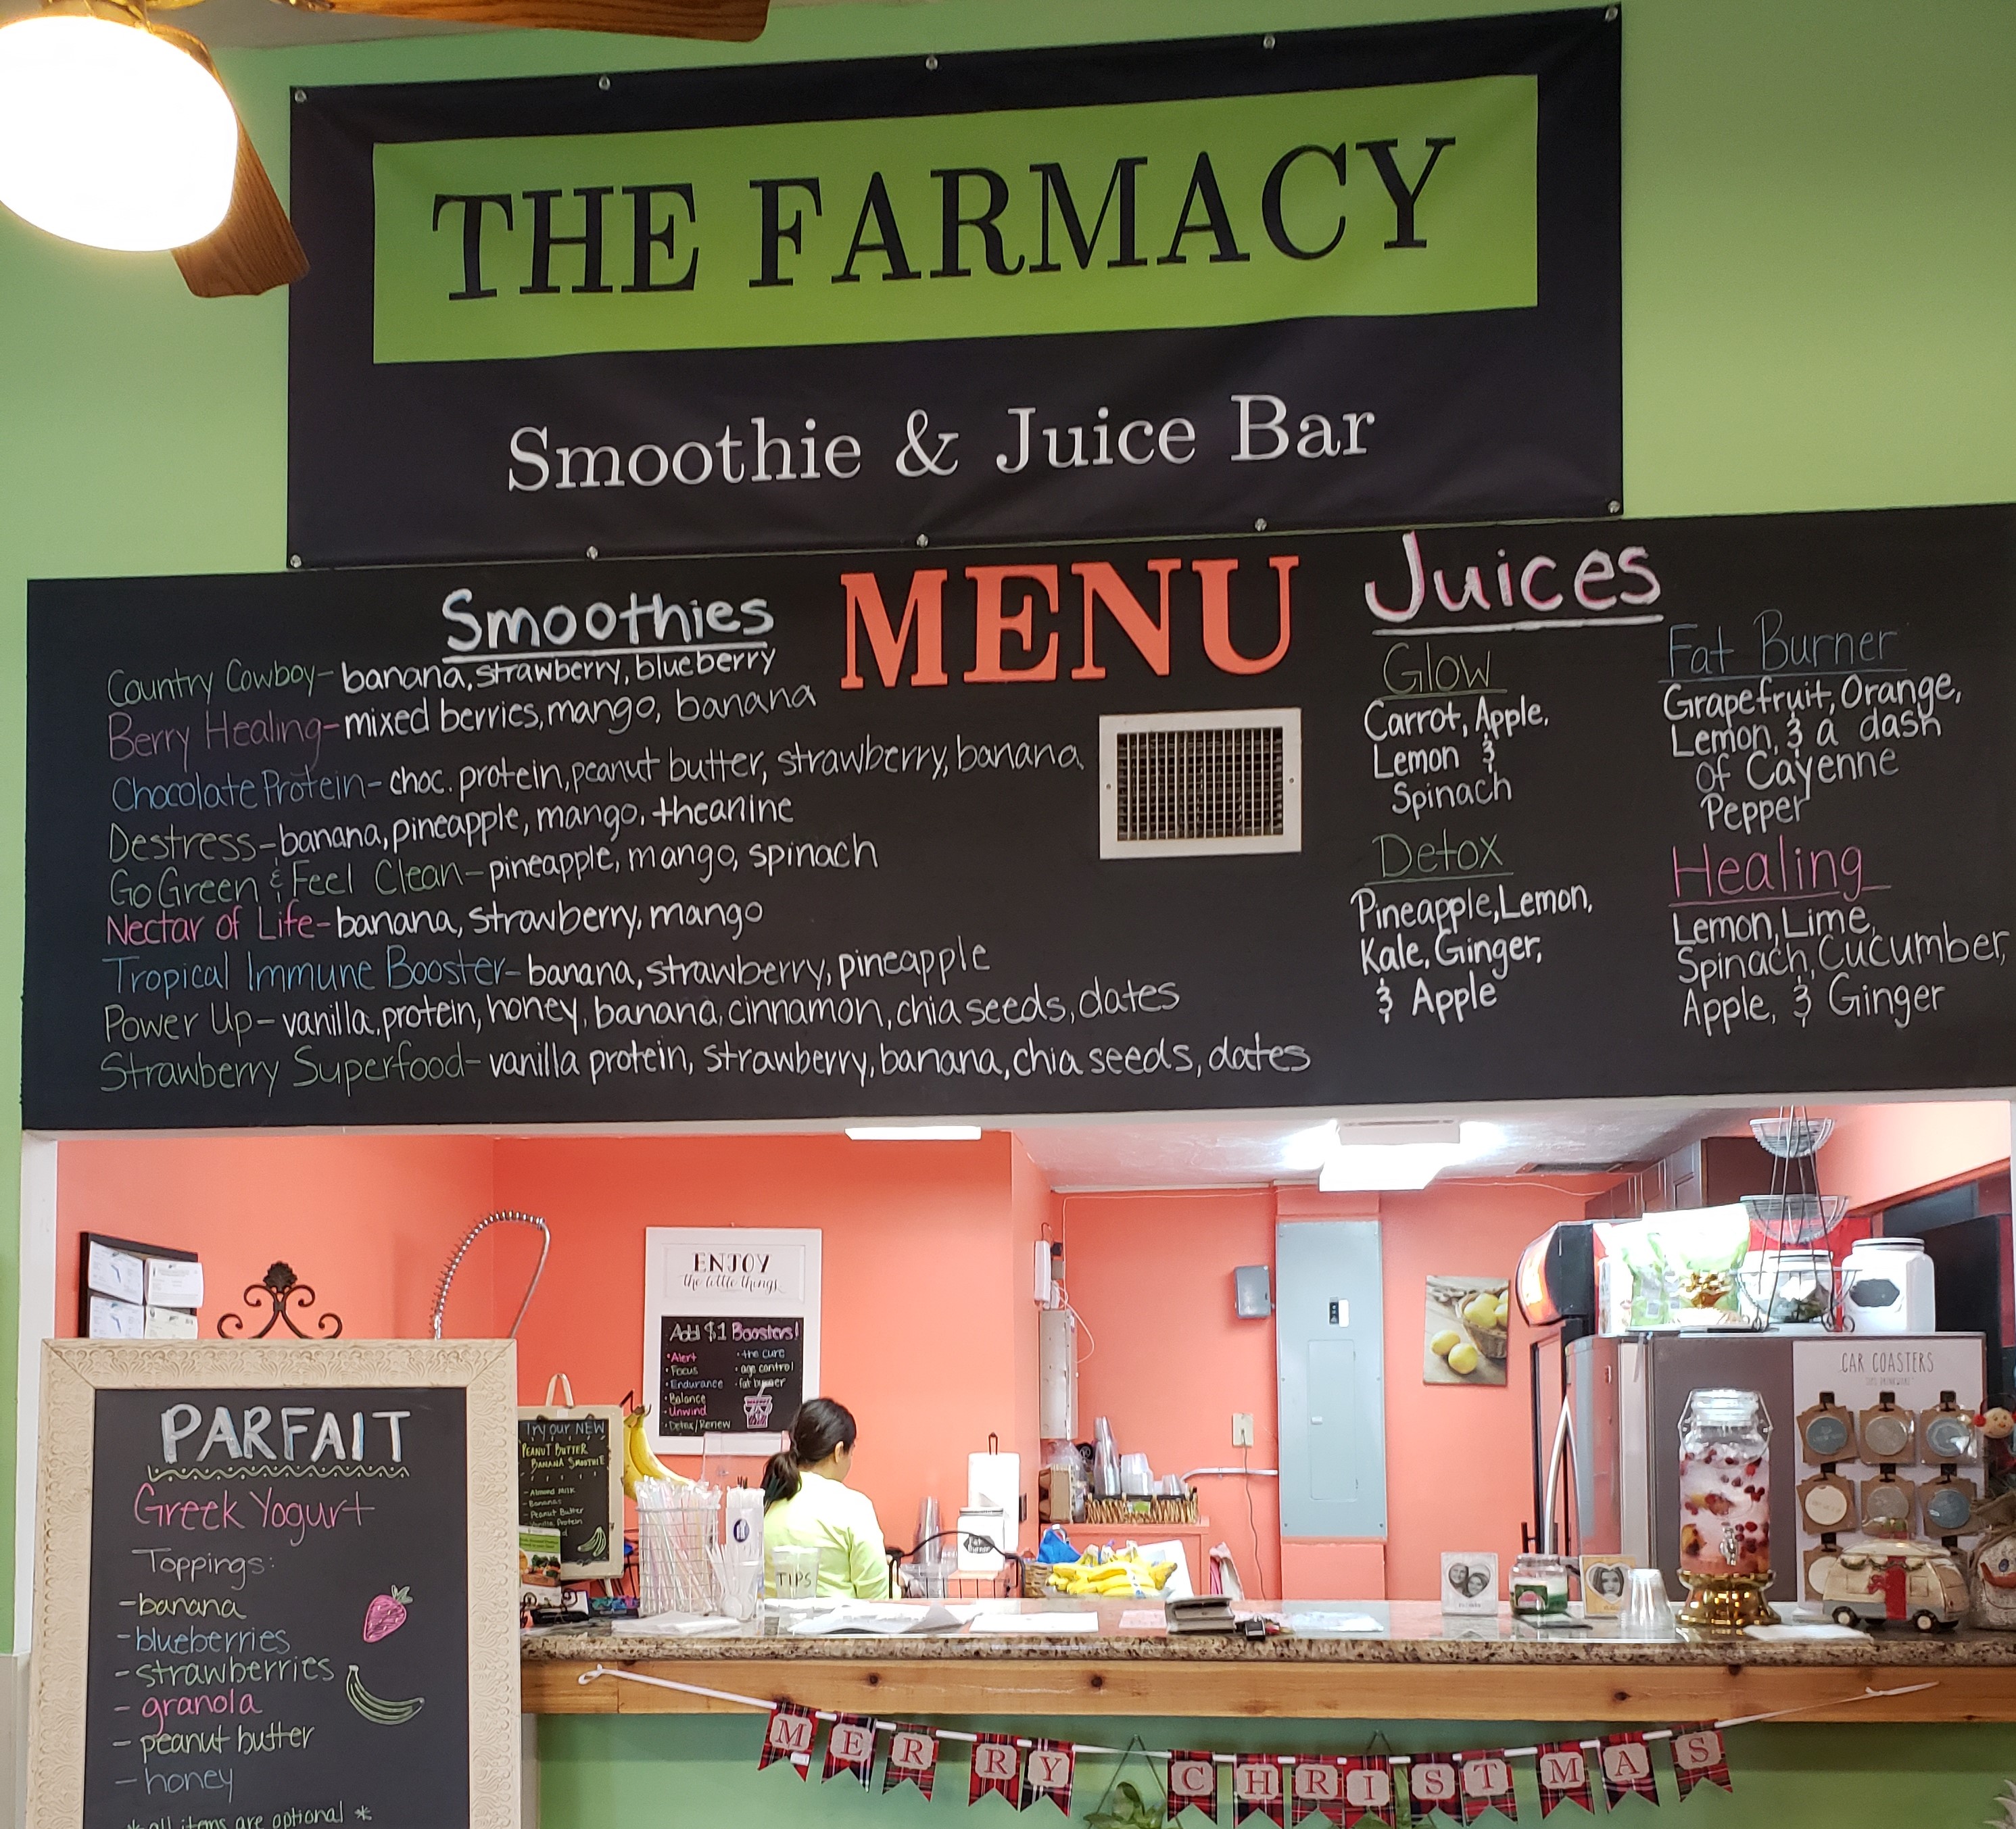 THE FARMACY
Smoothie & Juice Bar
MENU
Smoothies
Country Cowboy- banana, strawberry, blueberry
Berry Healing- mixed berries, mango, banana
Chocolate Protein- choc. protein, peanut butter, strawberry, banana
Destress- banana, pineapple, mango, theanine
Go Green & Feel Clean- pineapple, mango, spinach
Nectar of Life- banana, strawberry, mango
Tropical Immune Booster- banana, strawberry, pineapple
Power Up- vanilla, protein, honey, banana, cinnamon, chia seeds, dates
Strawberry Superfood- vanilla protein, strawberry, banana, chia seeds, dates
Juices
Glow
Carrot, Apple,
Lemon &
Spinach
Detox
Pineapple, Lemon,
Kale, Ginger,
& Apple
Fat Burner
Grapefruit, Orange,
Lemon, & a dash
of Cayenne
Pepper
Healing
Lemon, Lime,
Spinach, Cucumber,
Apple, & Ginger
ENJOY
the little things
Add $1 Boosters!
• Alert
• Focus
• Endurance
• Balance
• Unwind
• Detox/Renew
• the cure
• age control
• fat burner
PARFAIT
Greek Yogurt
Toppings:
- banana
- blueberries
- strawberries
- granola
- peanut butter
- honey
* all items are optional *
Try our NEW
PEANUT BUTTER
BANANA SMOOTHIE
- Almond Milk
- Bananas
- Peanut Butter
- Vanilla Protein
TIPS
Fat Burner
CAR COASTERS
MERRY CHRISTMAS